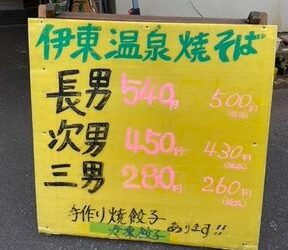 伊東温泉焼そば
長男 540円 500円
次男 450円 430円
三男 280円 260円
手作り焼餃子
冷凍餃子 あります!!